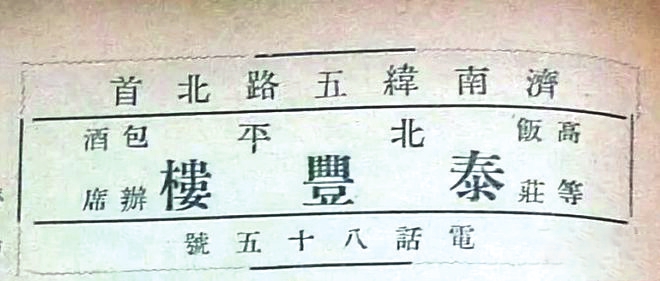 濟南緯五路北首
高等飯莊
北平
泰豐樓
包辦酒席
電話八十五號